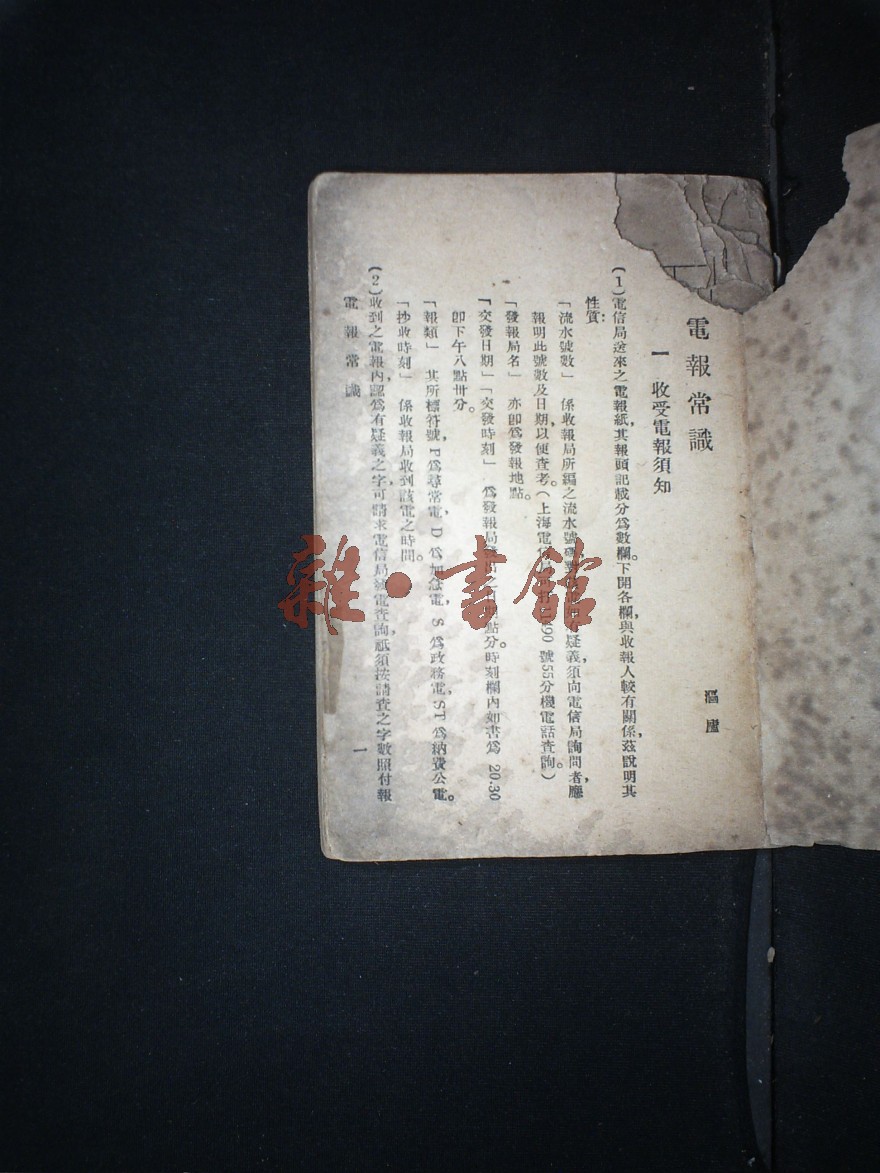 電報常識
漚廬
一 收受電報須知
(1)電信局送來之電報紙,其報頭記載分為數欄,下開各欄,與收報人較有關係,茲說明其
性質:
「流水號數」 係收報局所編之流水號碼 疑義,須向電信局詢問者,應
報明此號數及日期,以便查考。(上海電信局 90 號55分機電話查詢)
「發報局名」 亦即為發報地點。
「交發日期」「交發時刻」 為發報局 點分。時刻欄內如書為 20.30
即下午八點卅分。
「報類」 其所標符號,P為尋常電,D 為加急電,S 為政務電,ST為納費公電。
「抄收時刻」 係收報局收到該電之時間。
(2)收到之電報內,認為有疑義之字,可請求電信局 電查詢,祇須按請查之字數照付報
電報常識
一
雜·書館